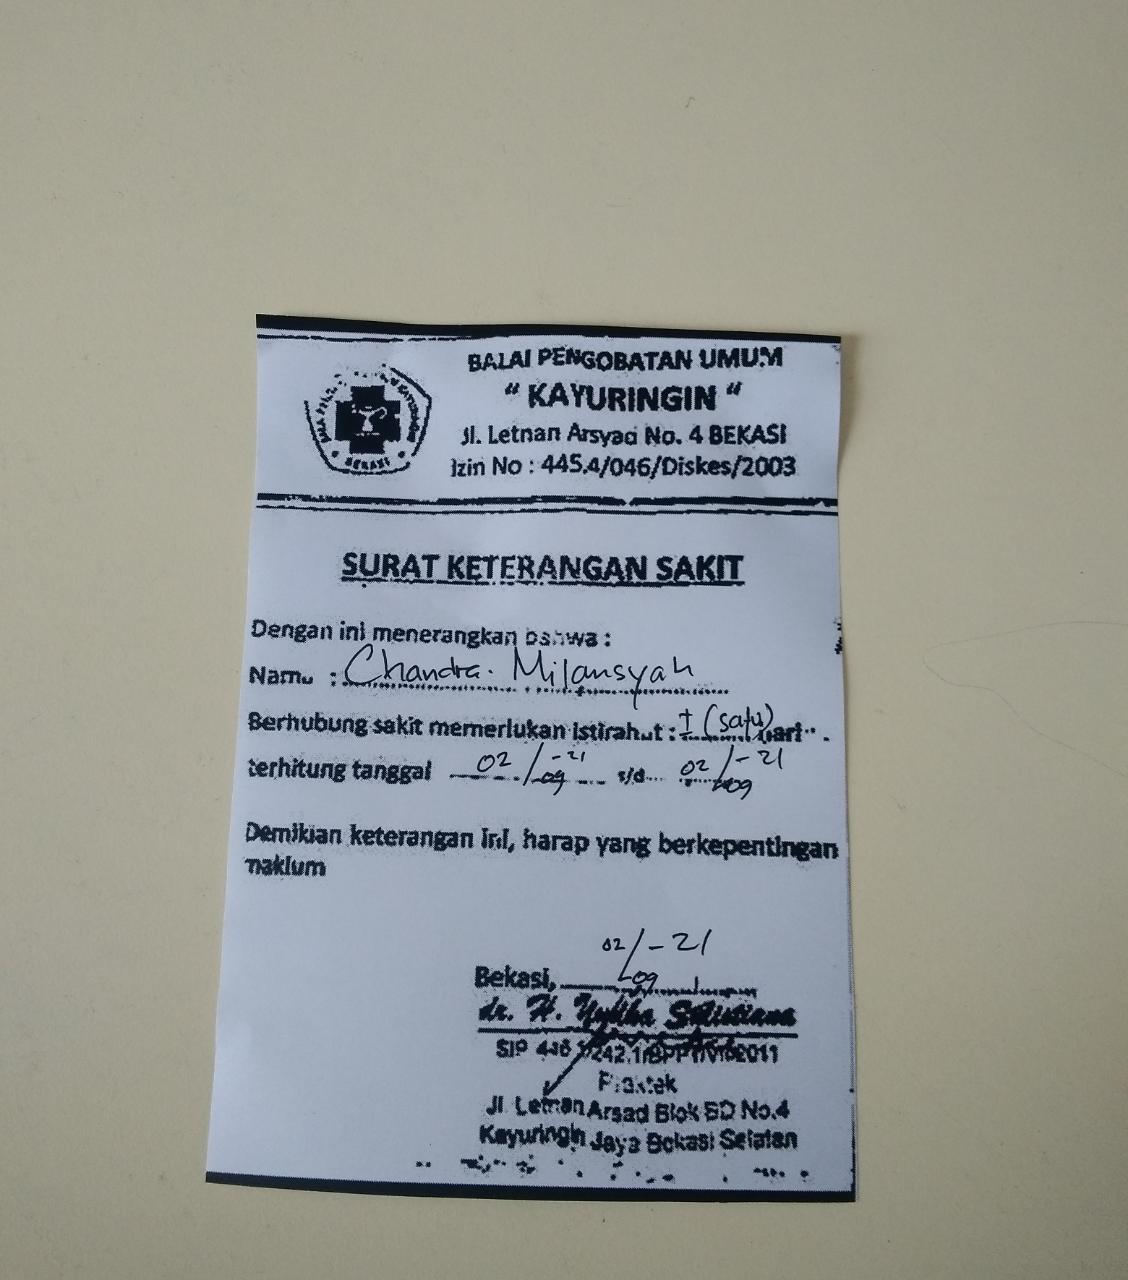 BALAI PENGOBATAN UMUM
“ KAYURINGIN “
Jl. Letnan Arsyad No. 4 BEKASI
Izin No : 445.4/046/Diskes/2003
BEKASI
SURAT KETERANGAN SAKIT
Dengan ini menerangkan bahwa :
Nama : Chandra. Milansyah
Berhubung sakit memerlukan istirahat : ± (satu) hari
terhitung tanggal 02/09-21 s/d 02/09-21
Demikian keterangan ini, harap yang berkepentingan
maklum
Bekasi, 02/09-21
dr. H. Yudha
SIP 446
Praktek
Jl. Letnan Arsad Blok BD No.4
Kayuringin Jaya Bekasi Selatan